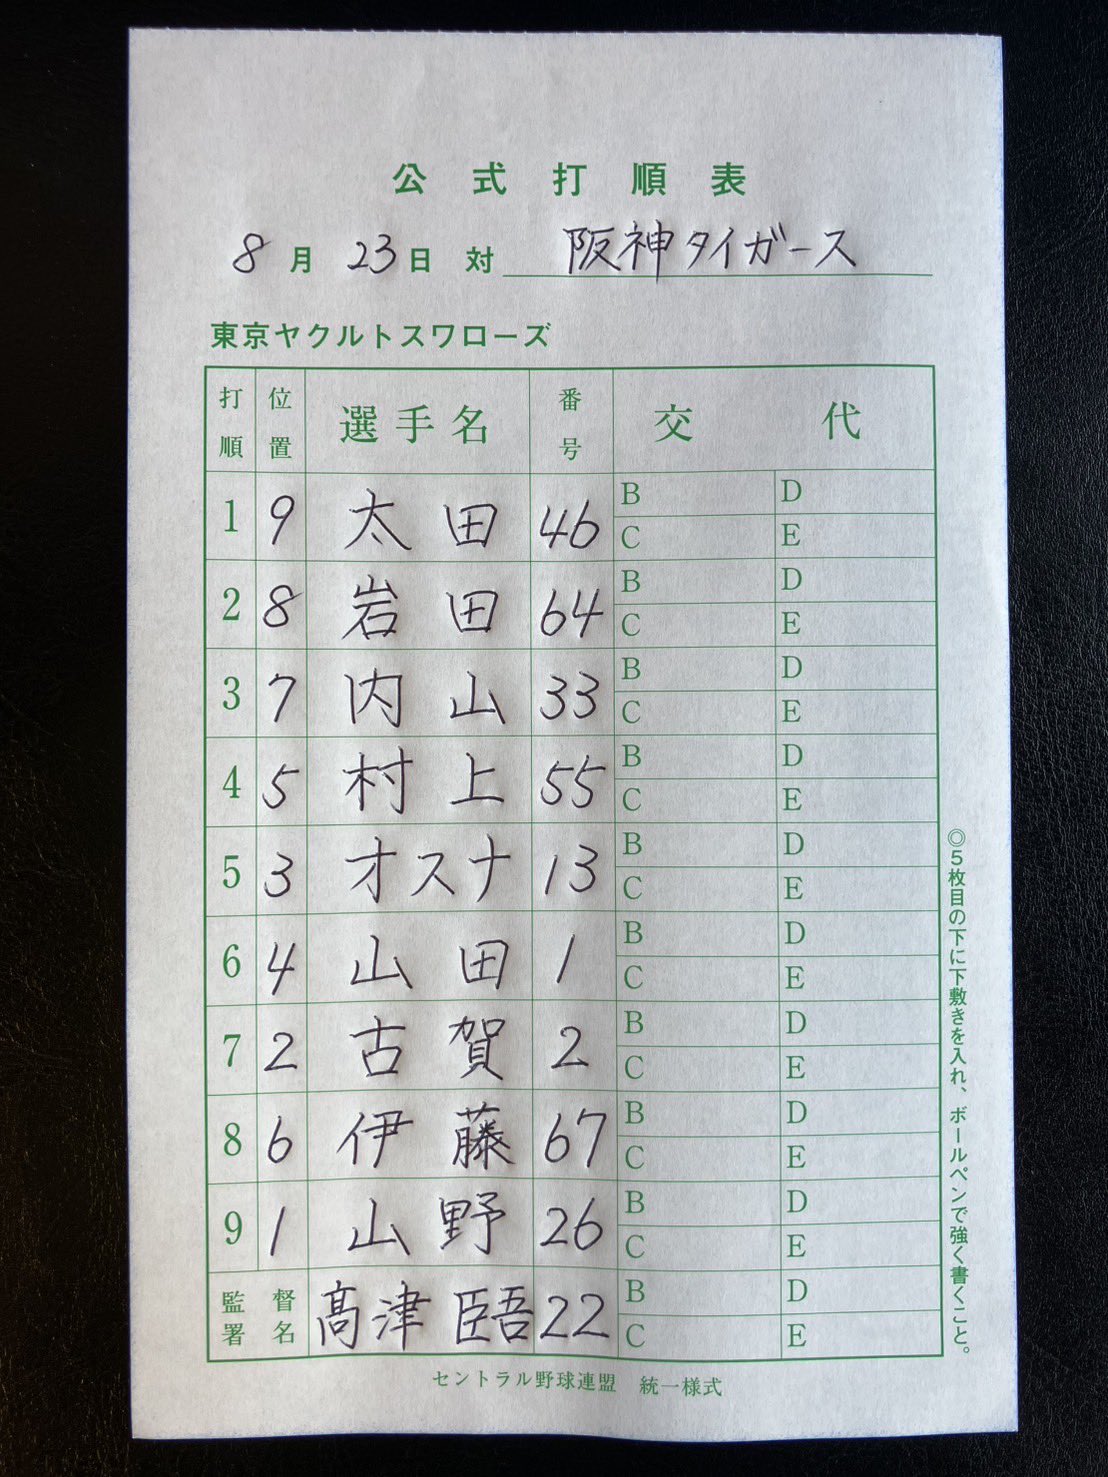 公式打順表
8月23日 対 阪神タイガース
東京ヤクルトスワローズ
打順 位置 選手名 番号 交代
1 9 太田 46 B D
C E
2 8 岩田 64 B D
C E
3 7 内山 33 B D
C E
4 5 村上 55 B D
C E
5 3 オスナ 13 B D
C E
6 4 山田 1 B D
C E
7 2 古賀 2 B D
C E
8 6 伊藤 67 B D
C E
9 1 山野 26 B D
C E
監督署名 髙津 臣吾 22 B D
C E
セントラル野球連盟 統一様式
◎5枚目の下に下敷きを入れ、ボールペンで強く書くこと。